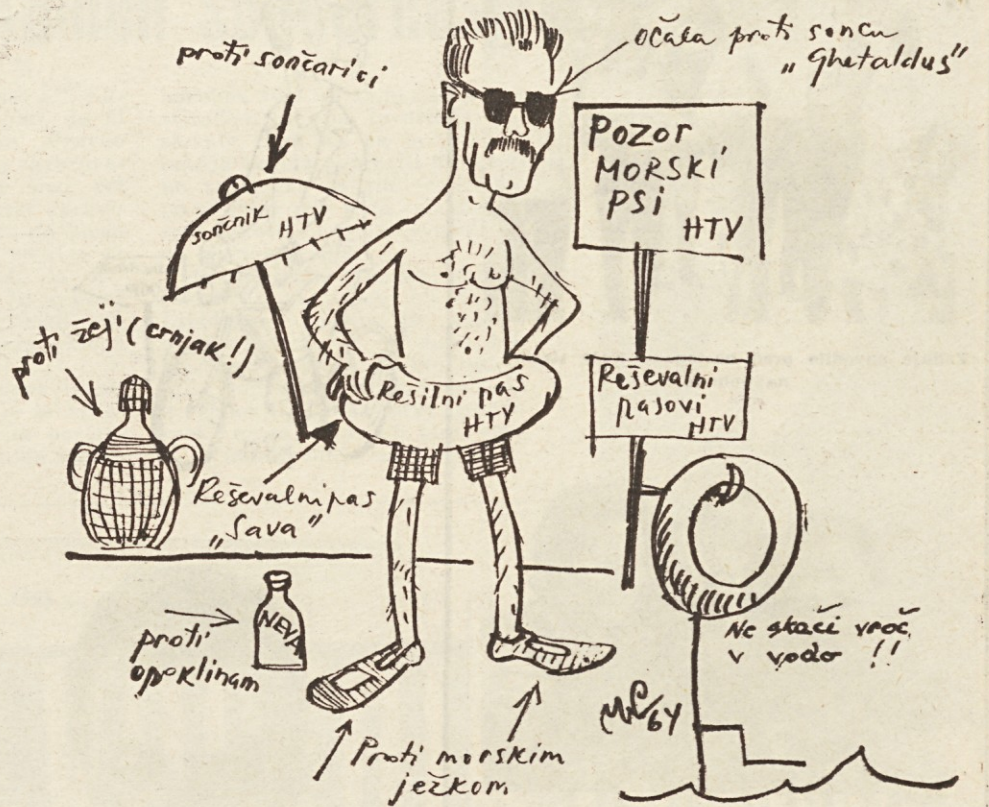 proti sončarici
očala proti soncu
„Ghetaldus"
Pozor
MORSKI
PSI
HTV
sončnik HTV
proti žeji (črnjak!)
Rešilni pas
HTV
Reševalni
pasovi
HTV
Reševalni pas
„Sava"
NEVA
proti
opeklinam
Ne skači vroč
v vodo !!
64
Proti morskim
ježkom